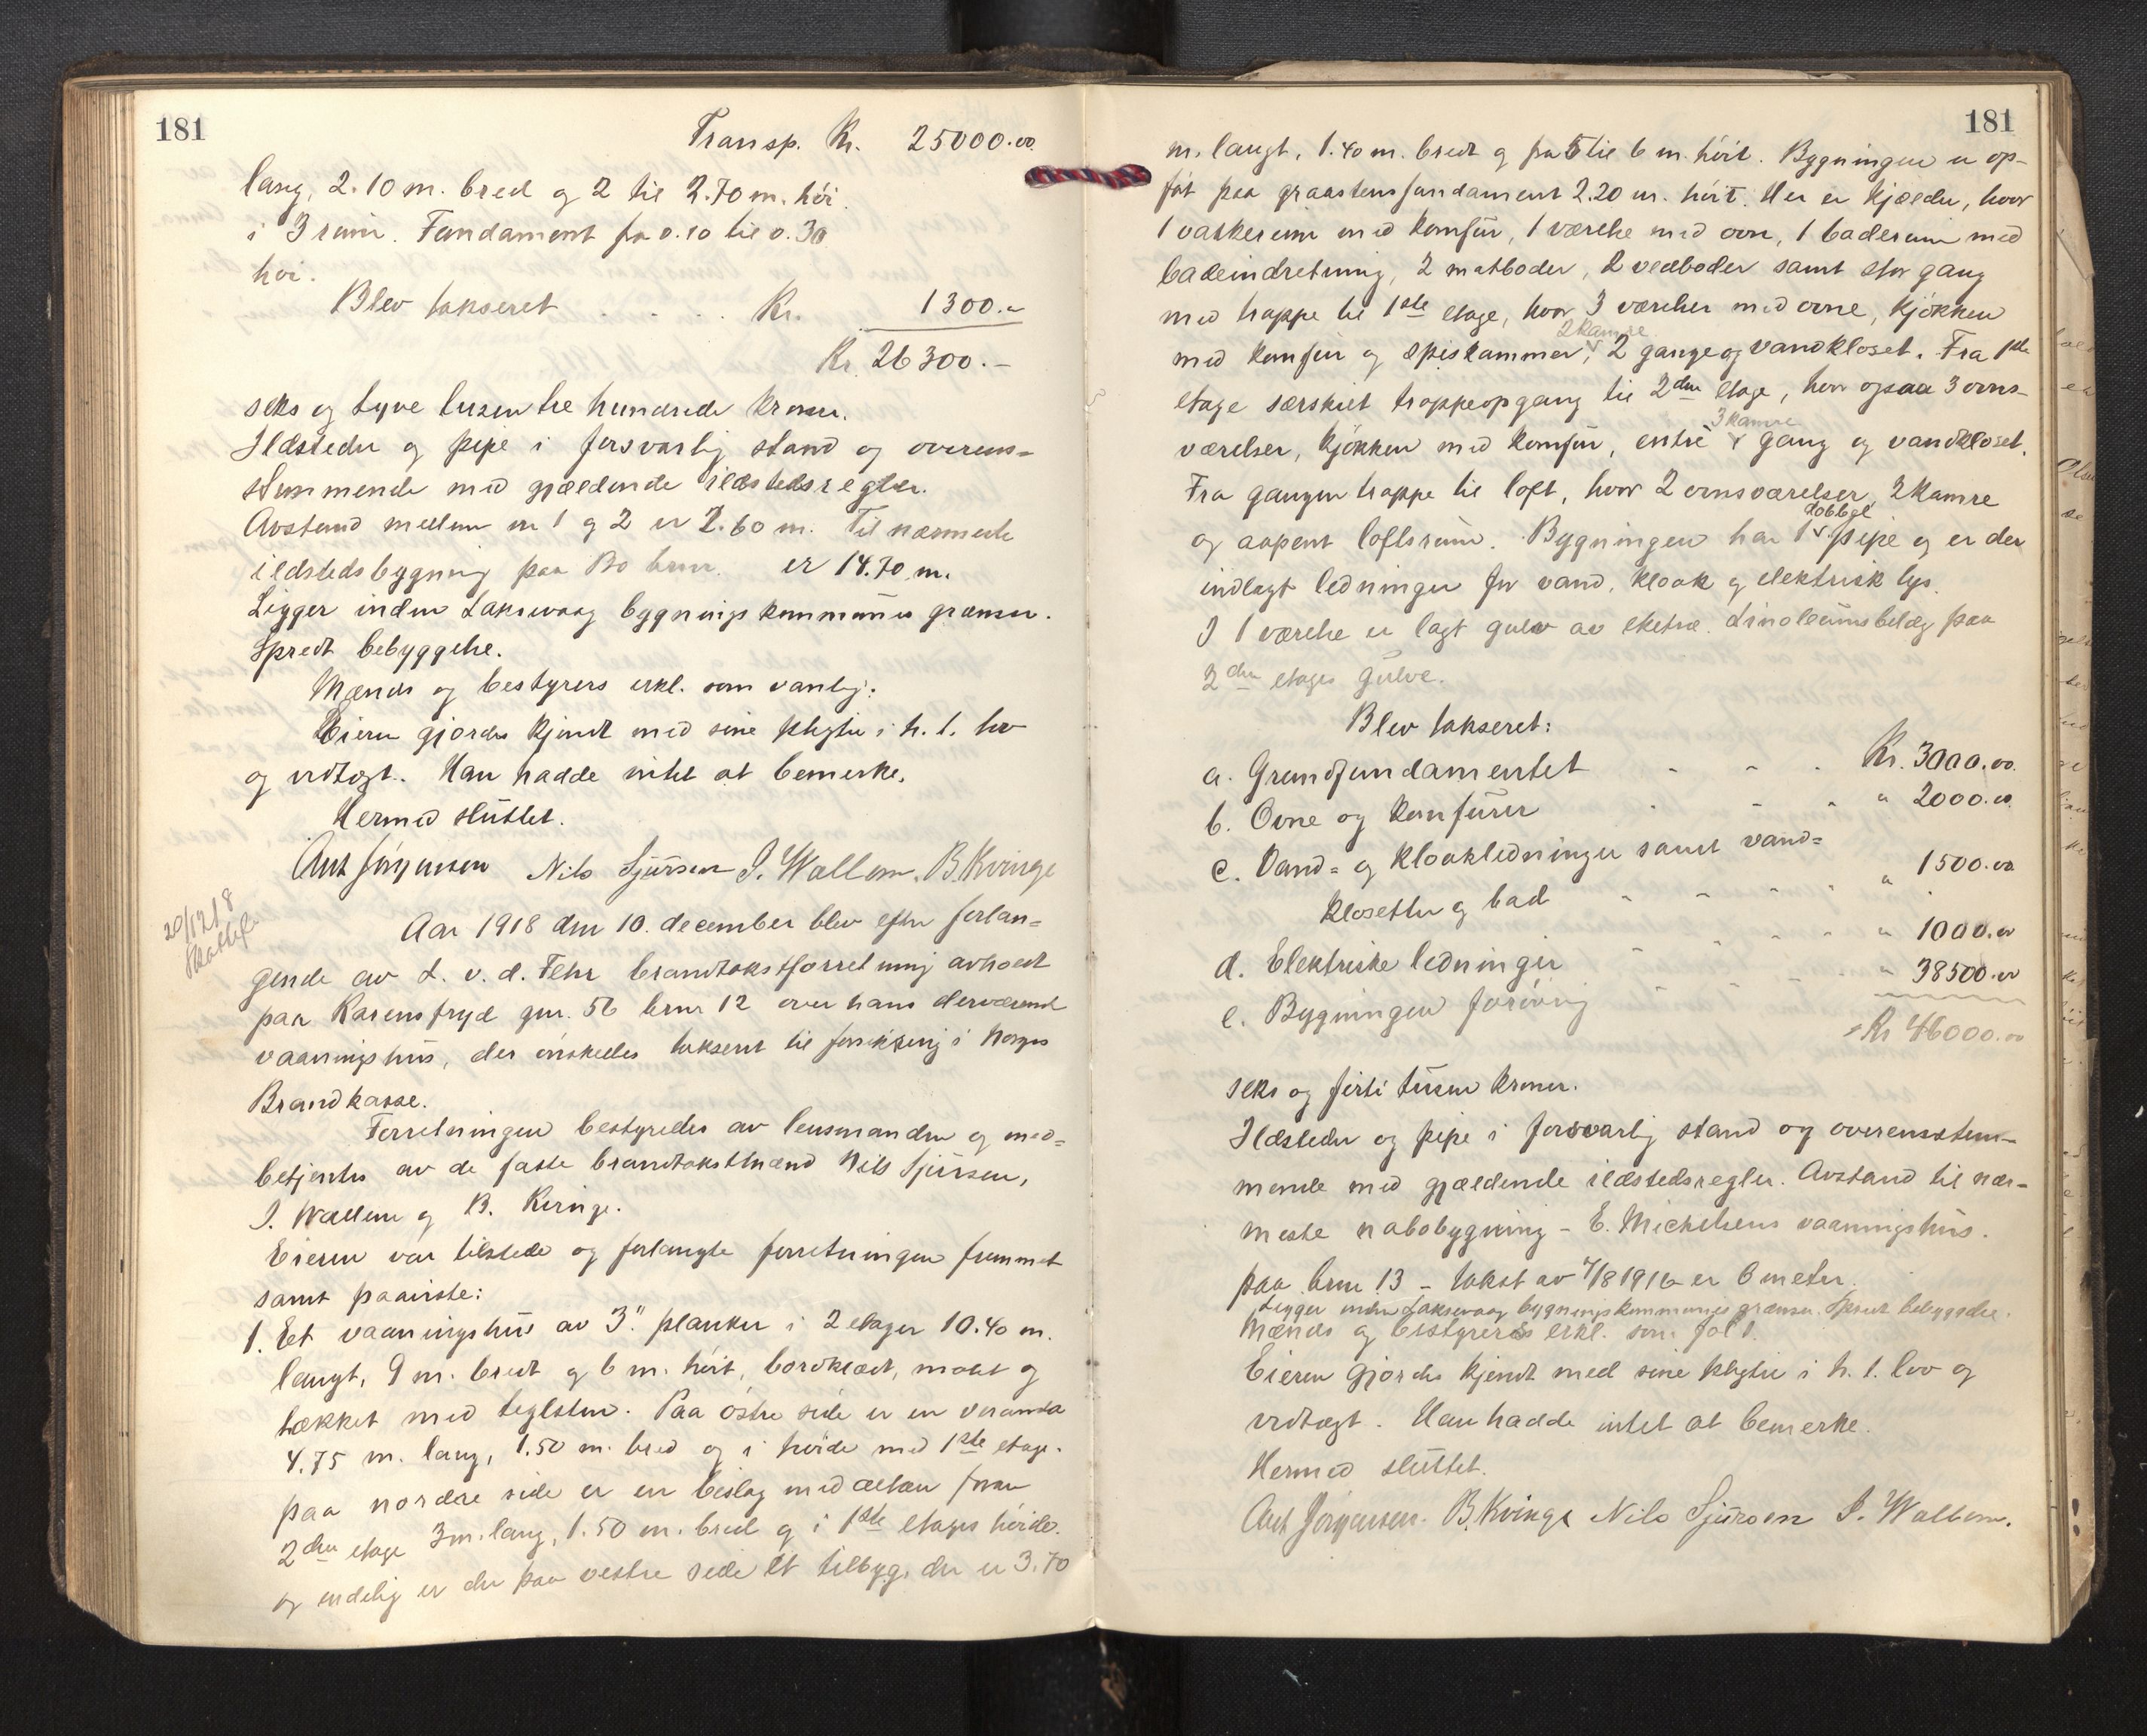 181
Transp. Kr. 25000.00
lang, 2.10 m. bred og 2 til 2.70 m. høi
i 3 rum. Fundament fra 0.10 til 0.30
høi.
Blev takseret . . . . Kr. 1300.-
Kr. 26300.-
seks og tyve tusen tre hundrede kroner.
Ildsteder og pipe i forsvarlig stand og overens=
stemmende med gjældende ildstedsregler.
Avstand mellem nr 1 og 2 er 2.60 m. Til nærmeste
ildstedsbygning paa Bo brnr. er 14.70 m.
Ligger inden Laksevaag bygningskommunes grænser.
Spredt bebyggelse.
Mænds og bestyrers erkl. som vanlig.
Eieren gjordes kjendt med sine pligter i h. t. lov
og vedtægt. Han hadde intet at bemerke.
Hermed sluttet.
Ant Jørgensen Nils Sjursen I. Wallem. B. Kvinge
20/12 18
Aar 1918 den 10. december blev efter forlan=
gende av L. v. d. Fehr brandtakstforretning avholdt
paa Karensfryd gnr. 56 brnr 12 over hans derværende
vaaningshus, der ønskedes taksert til forsikring i Norges
Brandkasse.
Forretningen bestyredes av lensmanden og med=
betjentes av de faste brandtakstmænd Nils Sjursen,
I. Wallem og B. Kvinge.
Eieren var tilstede og forlangte forretningen fremmet
samt paaviste:
1. Et vaaningshus av 3" planker i 2 etager 10.40 m.
langt, 9 m. bredt og 6 m. høit, bordklædt, malt og
tækket med teglsten. Paa østre side er en veranda
4.75 m. lang, 1.50 m. bred og i høide med 1ste etage.
paa nordre side er en beslag med altan foran
2den etage 3 m. lang, 1.50 m. bred og i 1ste etages høide.
og endelig er der paa vestre side et tilbyg, der er 3.70
181
m. langt, 1.40 m. bredt og fra 5 til 6 m. høit. Bygningen er op-
ført paa graastensfundament 2.20 m. høit. Her er kjælder, hvor
1 vaskerum med komfur, 1 værelse med ovn, 1 baderum med
badeindretning, 2 matboder, 2 vedboder samt stor gang
med trappe til 1ste etage, hvor 3 værelser med ovne, kjøkken
2 kamre
med komfur og spiskammer, 2 gange og vandkloset. Fra 1ste
etage særskilt trappeopgang til 2den etage, hvor ogsaa 3 ovns-
3 kamre
værelser, kjøkken med komfur, entre gang og vandkloset.
Fra gangen trappe til loft, hvor 2 ovnsværelser, 2 kamre
dobbel
og aapent loftsrum. Bygningen har 1 pipe og er der
indlagt ledninger for vand, kloak og elektrisk lys.
I 1 værelse er lagt gulv av eketræ. Linoleumsbelæg paa
2den etages gulve.
Blev takseret:
a. Grundfundamentet - - - Kr. 3000.00
b. Ovne og komfurer - - - " 2000.00
c. Vand= og kloakledninger samt vand=
klosetter og bad - - - - " 1500.00
d. Elektriske ledninger - - - - " 1000.00
e. Bygningen forøvrig - - - - " 38500.00
Kr 46000.00
seks og firti tusen kroner.
Ildsteder og pipe i forsvarlig stand og overensstem-
mende med gjældende ildstedsregler. Avstand til nær-
meste nabobygning - E. Michelsens vaaningshus.
paa brnr 13 - takst av 4/8 1916 er 6 meter.
Ligger inden Laksevaag bygningskommunes grænser. Spredt bebyggelse.
Mænds og bestyrers erkl. som fol 1.
Eieren gjordes kjendt med sine pligter i h. t. lov og
vedtægt. Han hadde intet at bemerke.
Hermed sluttet.
Ant Jørgensen. B. Kvinge Nils Sjursen I. Wallem.